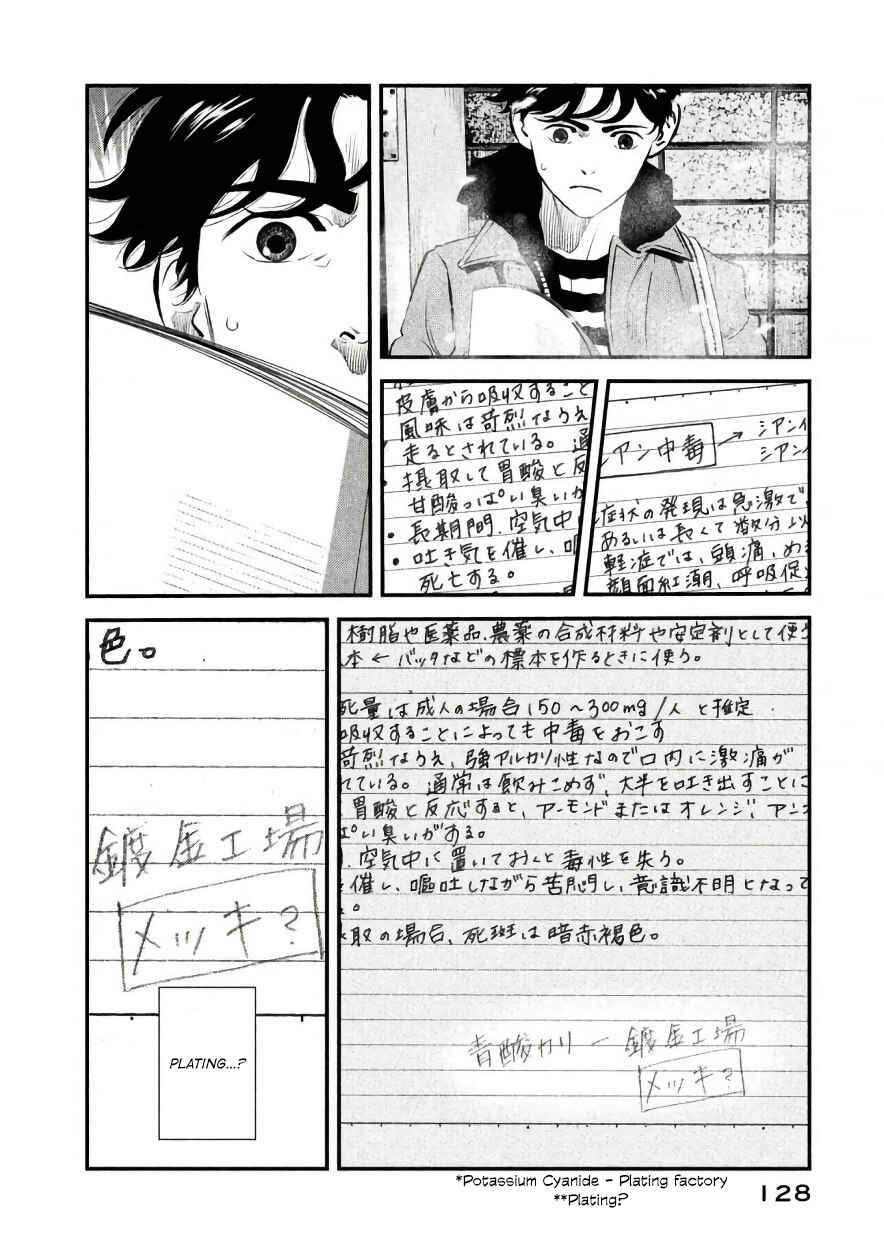 皮膚から吸収すること
風味は苛烈なうえ
走るとされている。通
・摂取して胃酸と反
甘酸っぱい臭いが
・長期間、空気中
・吐き気を催し、嘔
死亡する。
シアン中毒
シアン
シアン
症状の発現は急激で
あるいは長くて数分以
軽症では、頭痛、め
顔面紅潮、呼吸促
樹脂や医薬品、農薬の合成材料や安定剤として使う
本 ← バッタなどの標本を作るときに使う。
死量は成人の場合150〜300mg/人と推定
吸収することによっても中毒をおこす
苛烈なうえ、強アルカリ性なので口内に激痛が
れている。通常は飲みこめず、大半を吐き出すことに
胃酸と反応すると、アーモンドまたはオレンジ、アン
ぱい臭いがする。
、空気中に置いておくと毒性を失う。
催し、嘔吐しながら苦悶し、意識不明となって
。
取の場合、死斑は暗赤褐色。
青酸カリ ー 鍍金工場
メッキ?
色。
鍍金工場
メッキ?
PLATING...?
*Potassium Cyanide - Plating factory
**Plating?
128